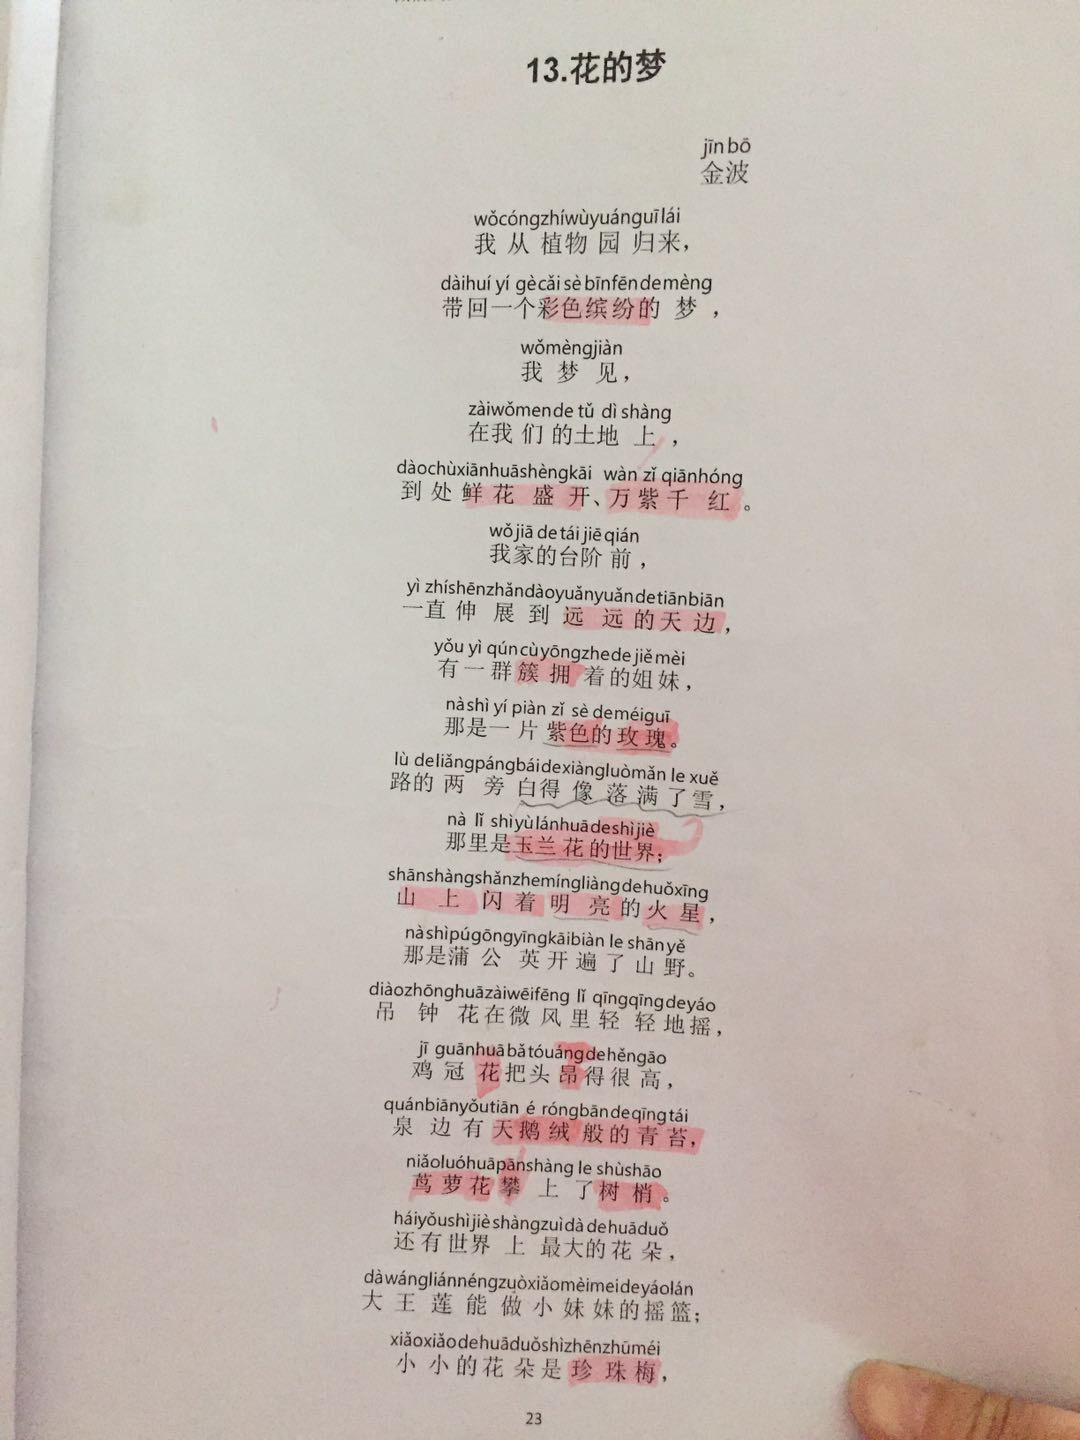 13.花的梦
jīn bō
金波
wǒcóngzhíwùyuánguīlái
我从植物园归来，
dàihuí yí gècǎi sè bīnfēndemèng
带回一个彩色缤纷的梦，
wǒmèngjiàn
我梦见，
zàiwǒmende tǔ dì shàng
在我们的土地上，
dàochùxiānhuāshèngkāi wàn zǐ qiānhóng
到处鲜花盛开、万紫千红。
wǒ jiā de tái jiē qián
我家的台阶前，
yì zhíshēnzhǎndàoyuǎnyuǎndetiānbiān
一直伸展到远远的天边，
yǒu yì qúncùyōngzhede jiě mèi
有一群簇拥着的姐妹，
nà shì yí piàn zǐ sè deméiguī
那是一片紫色的玫瑰。
lù deliǎngpángbáidexiàngluòmǎn le xuě
路的两旁白得像落满了雪，
nà lǐ shìyùlánhuādeshìjiè
那里是玉兰花的世界；
shānshàngshǎnzhemíngliàngdehuǒxīng
山上闪着明亮的火星，
nàshìpúgōngyīngkāibiàn le shānyě
那是蒲公英开遍了山野。
diàozhōnghuāzàiwēifēng lǐ qīngqīngdeyáo
吊钟花在微风里轻轻地摇，
jī guānhuābǎtóuángdehěngāo
鸡冠花把头昂得很高，
quánbiānyǒutiān é róngbāndeqīngtái
泉边有天鹅绒般的青苔，
niǎoluóhuāpānshàng le shùshāo
茑萝花攀上了树梢。
háiyǒushìjièshàngzuìdà dehuāduǒ
还有世界上最大的花朵，
dàwángliánnéngzuòxiǎomèimeideyáolán
大王莲能做小妹妹的摇篮；
xiǎoxiǎodehuāduǒshìzhēnzhūméi
小小的花朵是珍珠梅，
23